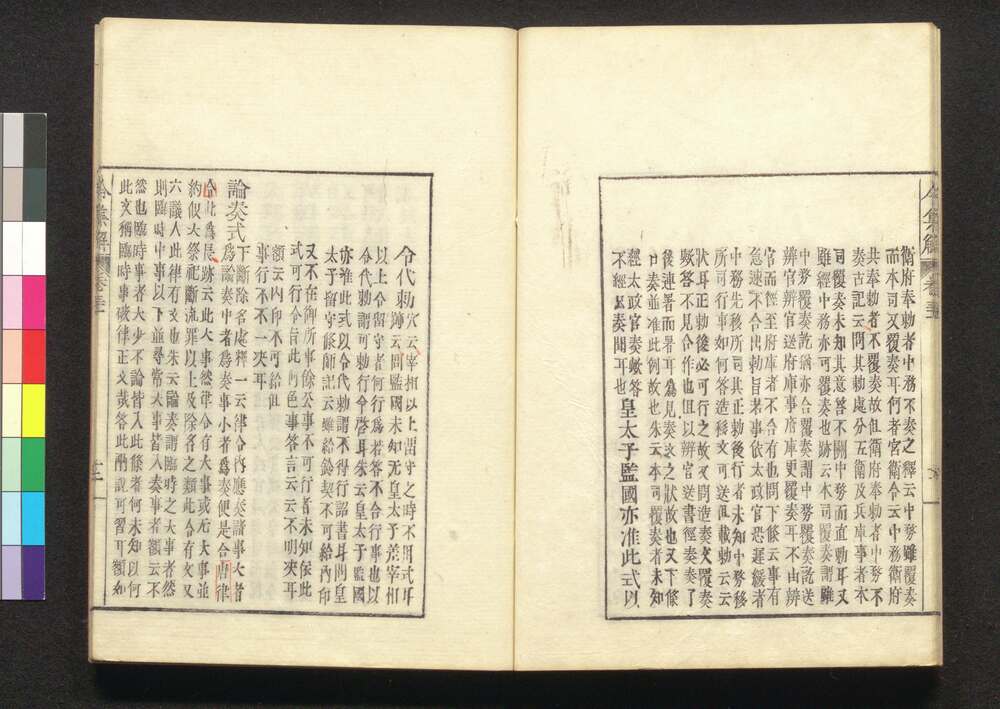 衛府奉勅者中務不奏之釋云中務雖覆奏
而本司又覆奏耳何者宮衛令云中務衛府
共奉勅者不覆奏故但衛府奉勅者中務不
奏古記云問其勅處分五衛及兵庫事者本
司覆奏未知其意答不關中務而直勅耳又
雖經中務亦可覆奏也跡云本司覆奏謂雖
中務覆奏訖猶亦合覆奏謂中務覆奏訖送
辨官辨官送府庫事府庫更覆奏耳不由辨
官而徑至府庫者不合有也問下條云事有
急速不合出勅旨某事依太政官恐遲緩者
中務先移所司其正勅後行者未知中務移
所可行事如何答造移文可送但載勅云云
狀耳正勅後必可行之故又問造奏文覆奏
哉答不見合作也但以辨官送書徑奏奏了
後連署而署耳爲見奏文之狀故也又下條
日奏並准此例故也朱云本司覆奏者未知
經太政官奏歟答
不經直奏聞耳也皇太子監國亦准此式以
令代勅穴云宰相以上留守之時不用式耳
以上令留守者何行爲若答不合行事也以
令代勅謂可勅行令啓耳朱云皇太子監國
亦准此式以令代勅謂不得行詔書耳問皇
太子留守條師説云雖給鈴契不可給内印
又不在御所事餘公事不可行者未知依此
式可行令旨此何色事答言云云不明耳
額云内印不可給但
事行不不一決耳
論奏式下斷除名處釋一云律令内應奏諸事大者
爲論奏中者爲奏事小者爲奏便是合唐律
令此爲長跡云此大事然律令有大事或无大事並
約似大祭祀斷流罪以上及除名之類此令有文又
六議人此律有文也朱云論奏謂臨時之大事者然
則臨時中事以下並尋常大事皆入奏事者額云不
然也臨時事者大少不論皆入此條者何未知以何
此文稱臨時事破律正文哉答此耐説可習耳額如